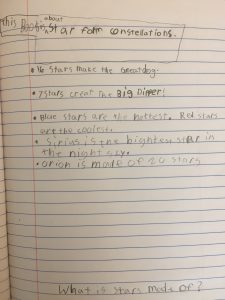 about
this Book is Star form constellations.
• 16 Stars make the Great dog.
• 7 Stars creat the Big Dipper!
• Blue stars are the hottest. Red stars
are the coolest.
• Sirius is the bightest star in
the night sky.
• Orion is made of 20 stars
What is stars made of?